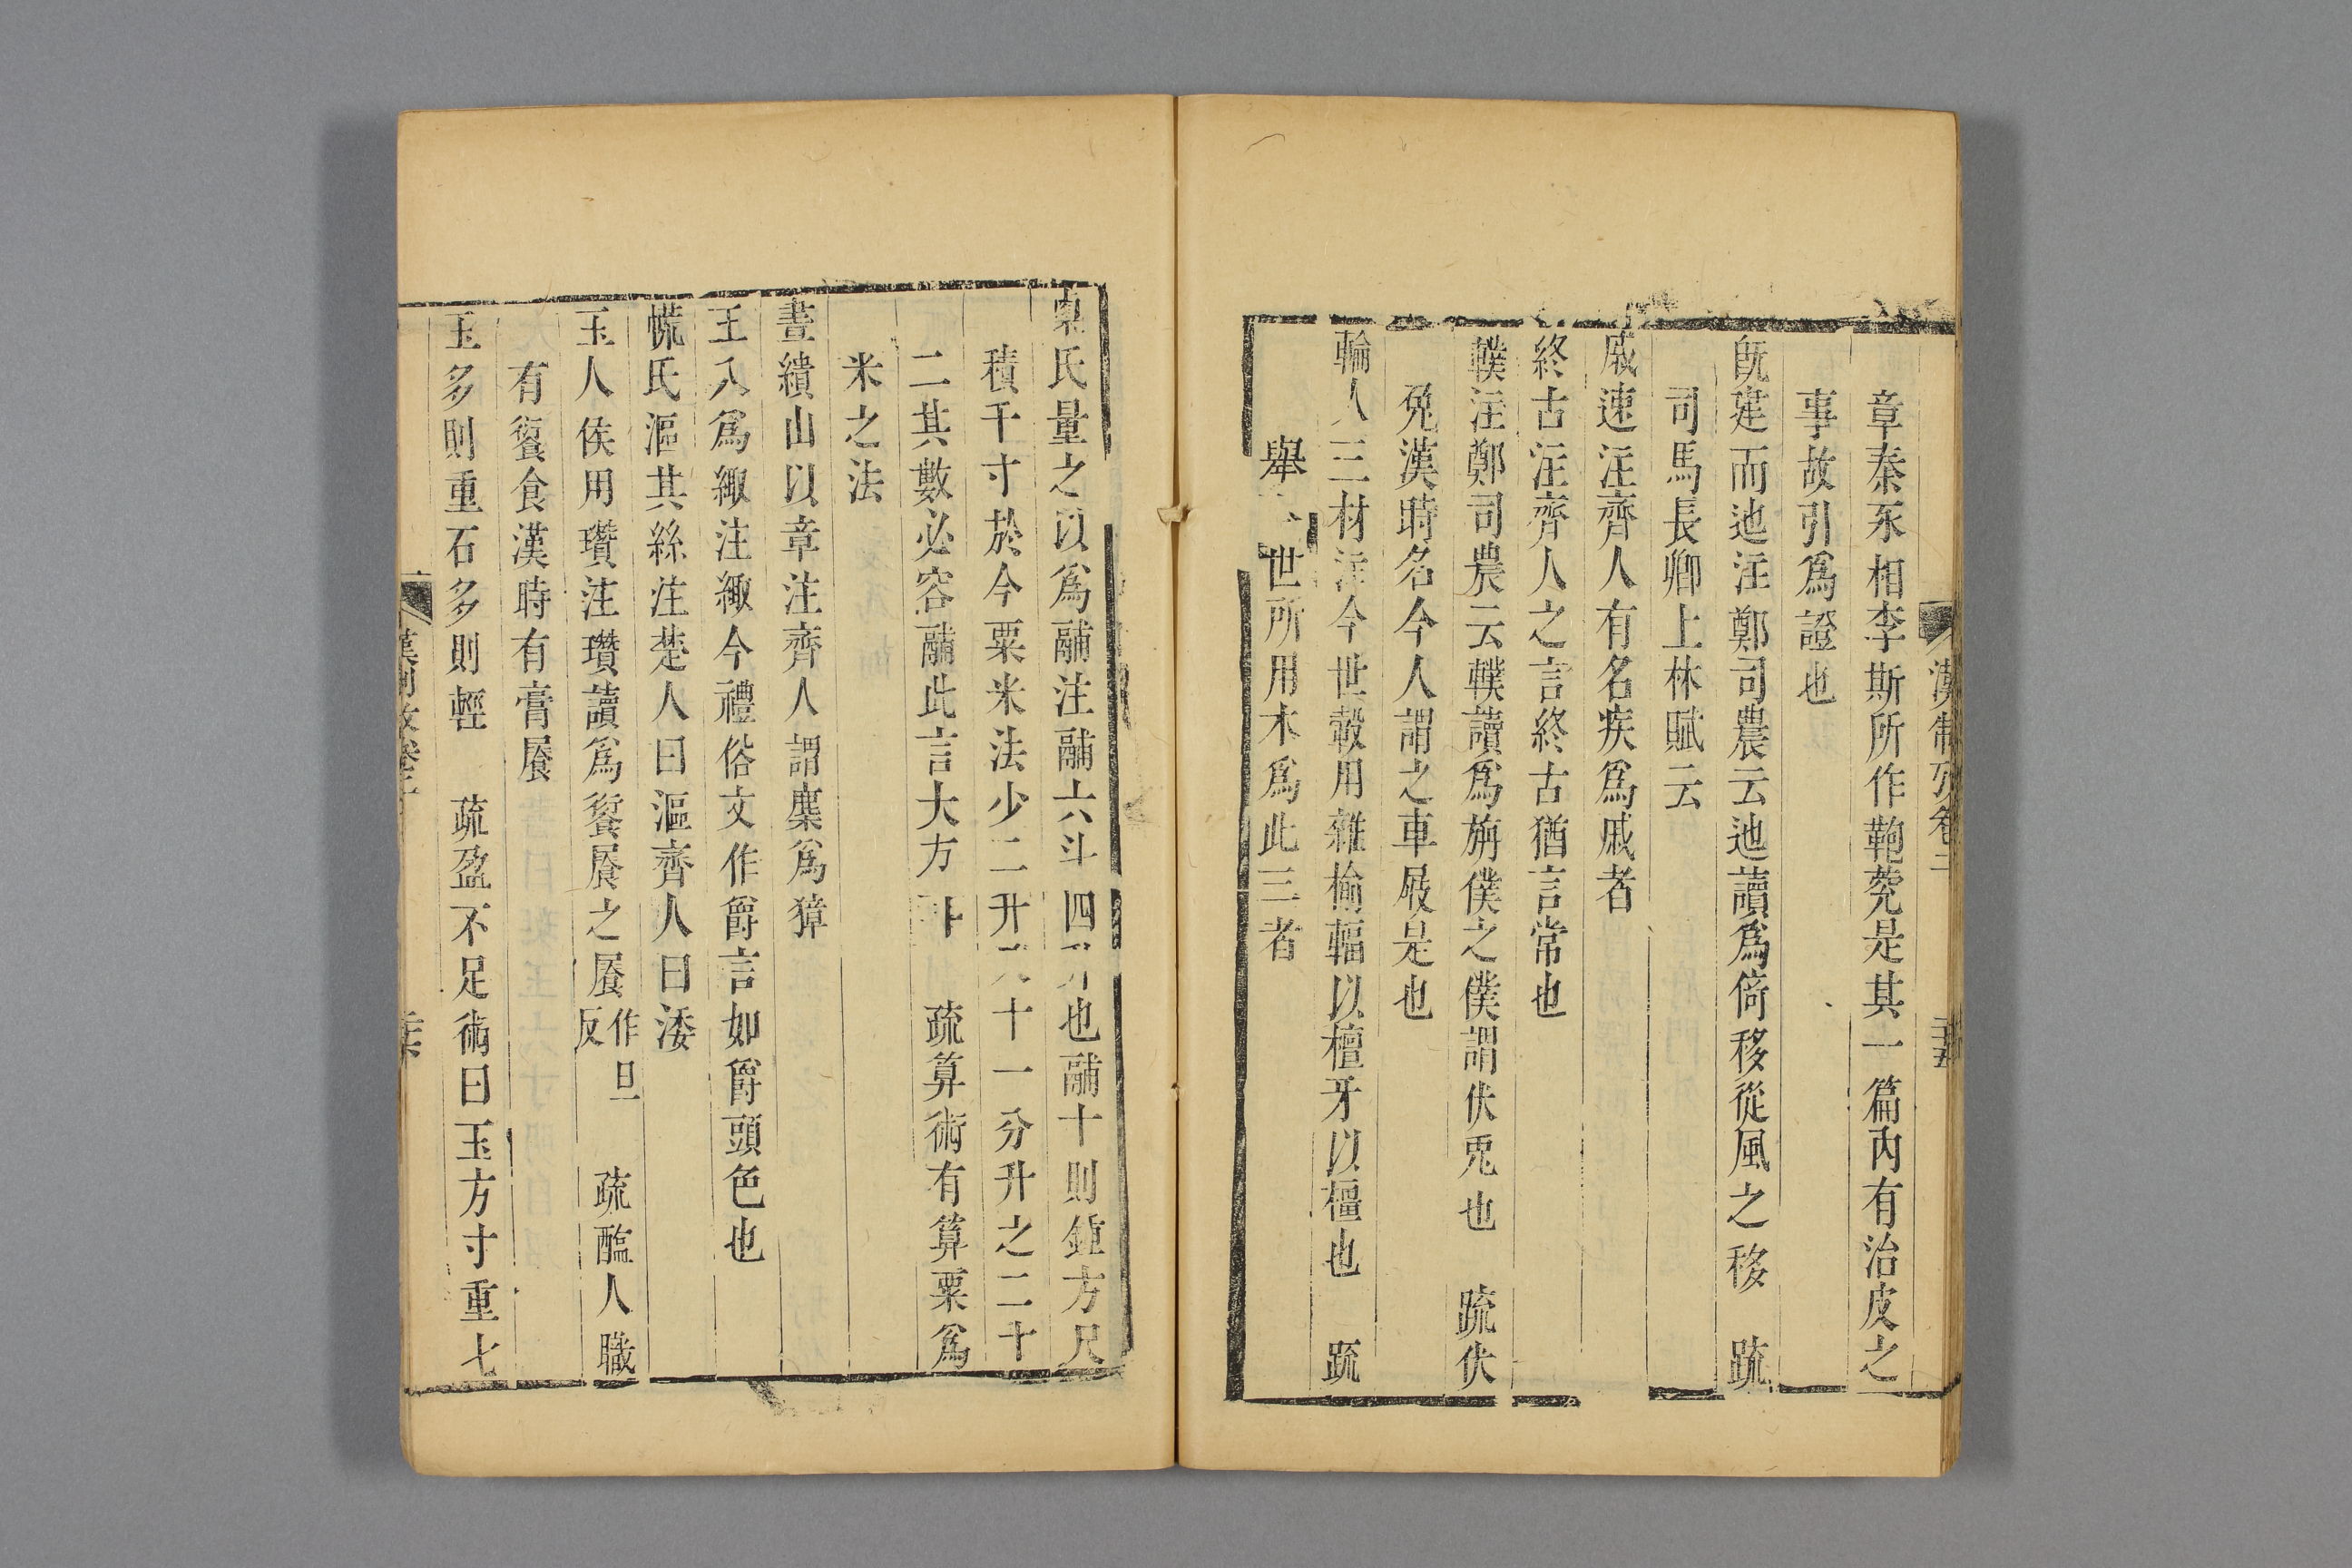 漢制攷卷二
章秦丞相李斯所作鞄㼱是其一篇內有治皮之
事故引爲證也
旣建而迆注鄭司農云迆讀爲倚移從風之移 疏
司馬長卿上林賦云
戚速注齊人有名疾爲戚者
終古注齊人之言終古猶言常也
轐注鄭司農云轐讀爲旃僕之僕謂伏兎也 疏伏
兔漢時名今人謂之車屐是也
輪人三材注今世轂用雜榆輻以檀牙以橿也 疏
舉 世所用木爲此三者
㮚氏量之以爲鬴注鬴六斗四升也鬴十則鍾方尺
積千寸於今粟米法少二升 十一分升之二十
二其數必容鬴此言大方 疏算術有算粟爲
米之法
畫繢山以章注齊人謂麇爲獐
五入爲緅注緅今禮俗文作爵言如爵頭色也
㡛氏漚其絲注楚人曰漚齊人曰涹
玉人侯用瓚注瓚讀爲餐屪之屪作旦反 疏醢人職
有餐食漢時有膏屪
玉多則重石多則輕 疏盈不足術曰玉方寸重七
漢制攷卷二